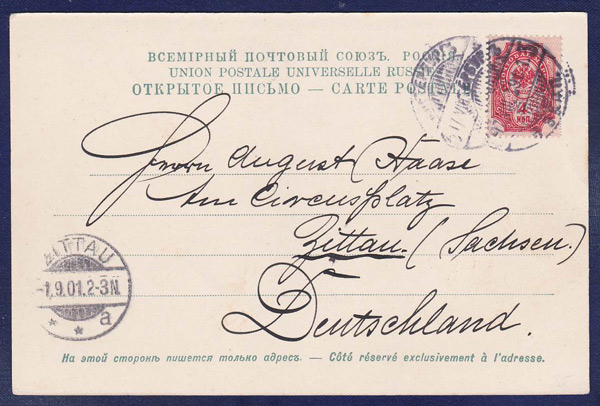 ВСЕМІРНЫЙ ПОЧТОВЫЙ СОЮЗЪ. РОССІЯ
UNION POSTALE UNIVERSELLE RUSSIE
ОТКРЫТОЕ ПИСЬМО — CARTE POSTALE
4 КОП
Herrn August Haase
Am Circusplatz
Zittau. (Sachsen.)
Deutschland.
ZITTAU
1.9.01.2-3N.
* * a
На этой сторонѣ пишется только адресъ. — Côté réservé exclusivement à l'adresse.